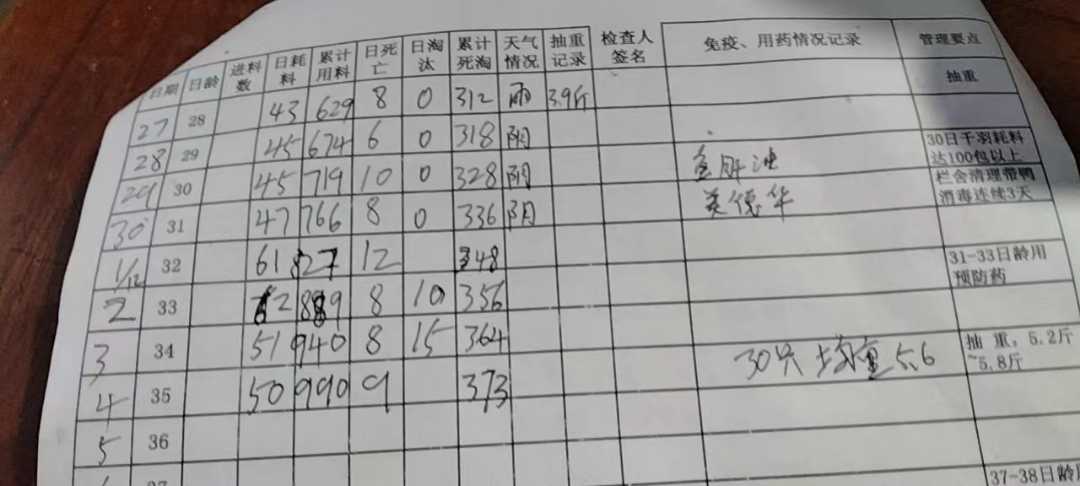 日期 日龄 进料数 日耗料 累计用料 日死亡 日淘汰 累计死淘 天气情况 抽重记录 检查人签名 免疫、用药情况记录 管理要点
27 28 43 629 8 0 312 雨 3.9斤 抽重
28 29 45 674 6 0 318 阴 30日千羽耗料达100包以上
29 30 45 719 10 0 328 阴 栏舍清理带鸭消毒连续3天
30 31 47 766 8 0 336 阴
1/12 32 61 827 12 348 31-33日龄用预防药
2 33 62 889 8 10 356
3 34 51 940 8 15 364 30只 均重5.6 抽重，5.2斤~5.8斤
4 35 50 990 9 373
5 36
37-38日龄